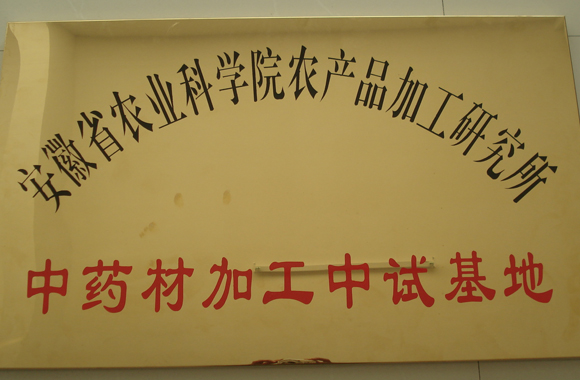 安徽省农业科学院农产品加工研究所
中药材加工中试基地